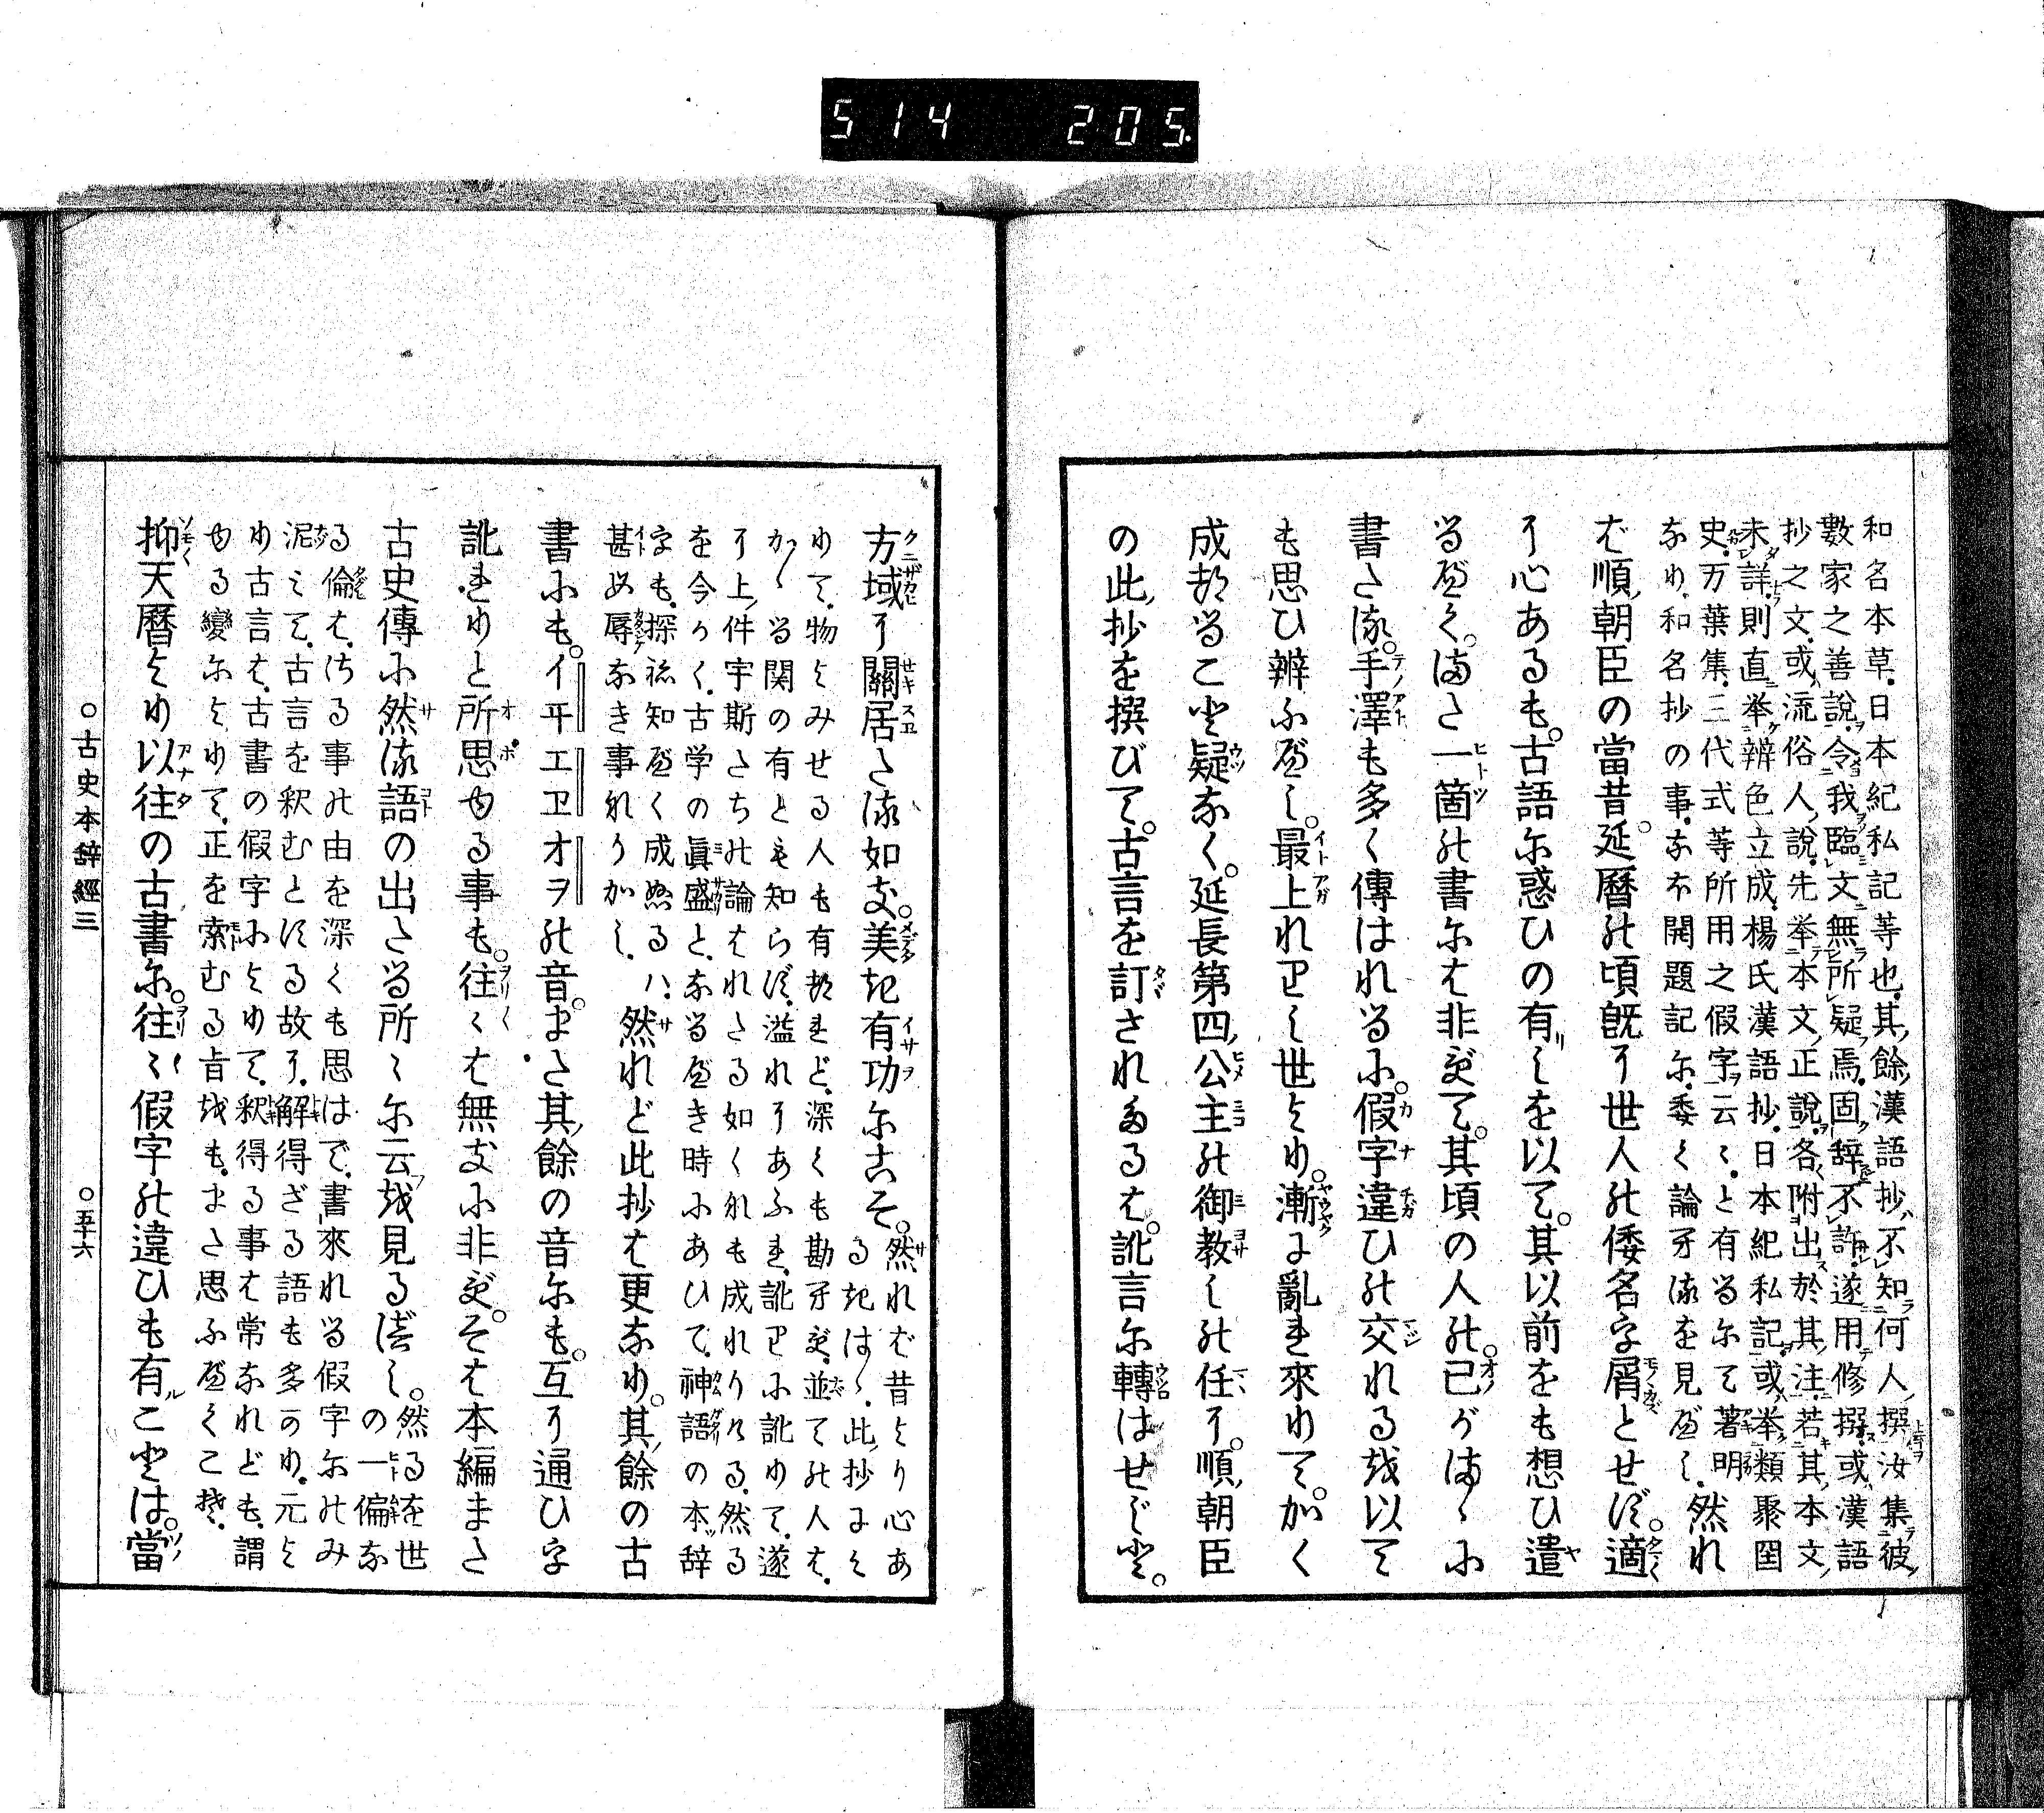 514 205.
和名本草.日本紀私記等也.其餘漢語抄不知何人撰汝集彼
數家之善說令我臨文無所疑焉.固辞不許.遂用修撰或漢語
抄之文.或流俗人說.先举本文正說各附出於其注.若其本文
未詳則直举辨色立成楊氏漢語抄.日本紀私記或举類聚国
史.万葉集.三代式等所用之假字云〻.と有るにて著明
なり.和名抄の事.なほ開題記に.委く論へるを見べし.然れ
ば順朝臣の當昔。延曆の頃既に世人の倭名字屑とせず。適
に心あるも。古語に惑ひの有しを以て。其以前をも想ひ遣
るべく。また一箇の書には非ずて。其頃の人の。己がまゝに
書たる。手澤も多く傳はれるに。假字違ひの交れるを以て
も思ひ辨ふべし。最上れりし世より。漸に亂れ來りて。かく
成れること疑なく。延長第四公主の御教しの任に。順朝臣
の此抄を撰びて。古言を訂されたるは。訛言に轉はせじと。
方域に關居たる如き。美き有功にこそ。然れば昔より心あ
るきはゝ.此抄によ
りて.物よみせる人も有れど.深くも勘へず.並ての人は.
かゝる関の有とも知らず.溢れにあふれ.訛りに訛りて.遂
に上件宇斯たちの論はれたる如くにも成れりける.然る
を今かく.古学の眞盛と.なるべき時にあひて.神語の本辞
字も.探ね知べく成ぬるハ.
甚も辱なき事にりかし.然れど此抄は更なり。其餘の古
書にも。イヰエヱオヲの音。また其餘の音にも。互に通ひ字
訛れりと所思ゆる事も。往〻は無きに非ず。そは本編また
古史傳に然る語の出たる所〻に云を見るべし。然るを世
の一偏な
る倫は.さる事の由を深くも思はで.書來れる假字にのみ
泥みて.古言を釈むとする故に.解得ざる語も多かり.元よ
り古言は.古書の假字によりて.釈得る事は常なれども.謂
ゆる變によりて.正を索むる旨をも.また思ふべくこそ.
抑天曆より以往の古書に。往〻假字の違ひも有ことは。當
○古史本辭經三
○五十六